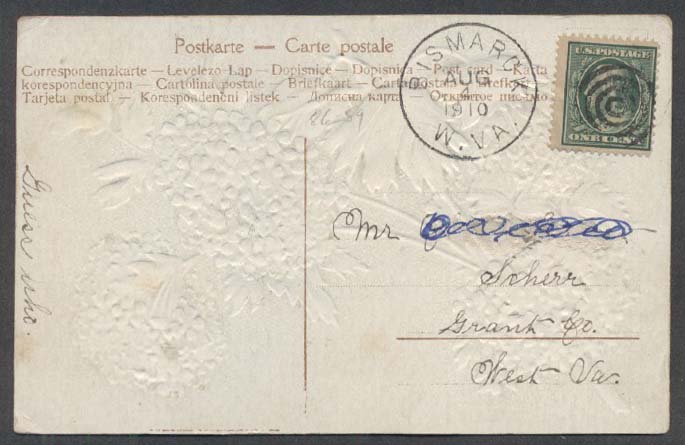 Postkarte — Carte postale
Correspondenzkarte — Levelező Lap — Dopisnice — Dopisnica — Post card — Karta
korespondencyjna — Cartolina postale — Briefkaart — Carta postala —
Tarjeta postal — Korespondenční listek — Дописна карта — Открытое письмо
86-89
BISMARCK
AUG
4
1910
W. VA.
U.S. POSTAGE
ONE CENT
Guess who.
Mr
Scherr
Grant Co.
West Va.